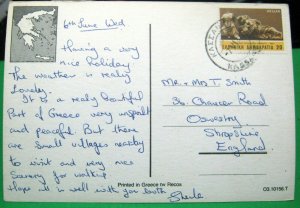 6th June Wed
Having a very
nice holiday
The weather is really
lovely.
It is a really beautiful
Part of Greece very unspoilt
and peaceful. But there
are small villages nearby
to visit and very nice
Scenery for walking
Hope all is well with you both
Sheila
Mr + Mrs T. Smith
3a Chaucer Road
Oswestry
Shropshire
England
HELLAS
ΕΛΛΗΝΙΚΗ ΔΗΜΟΚΡΑΤΙΑ 20
Printed in Greece by Recos
CG 10156 T